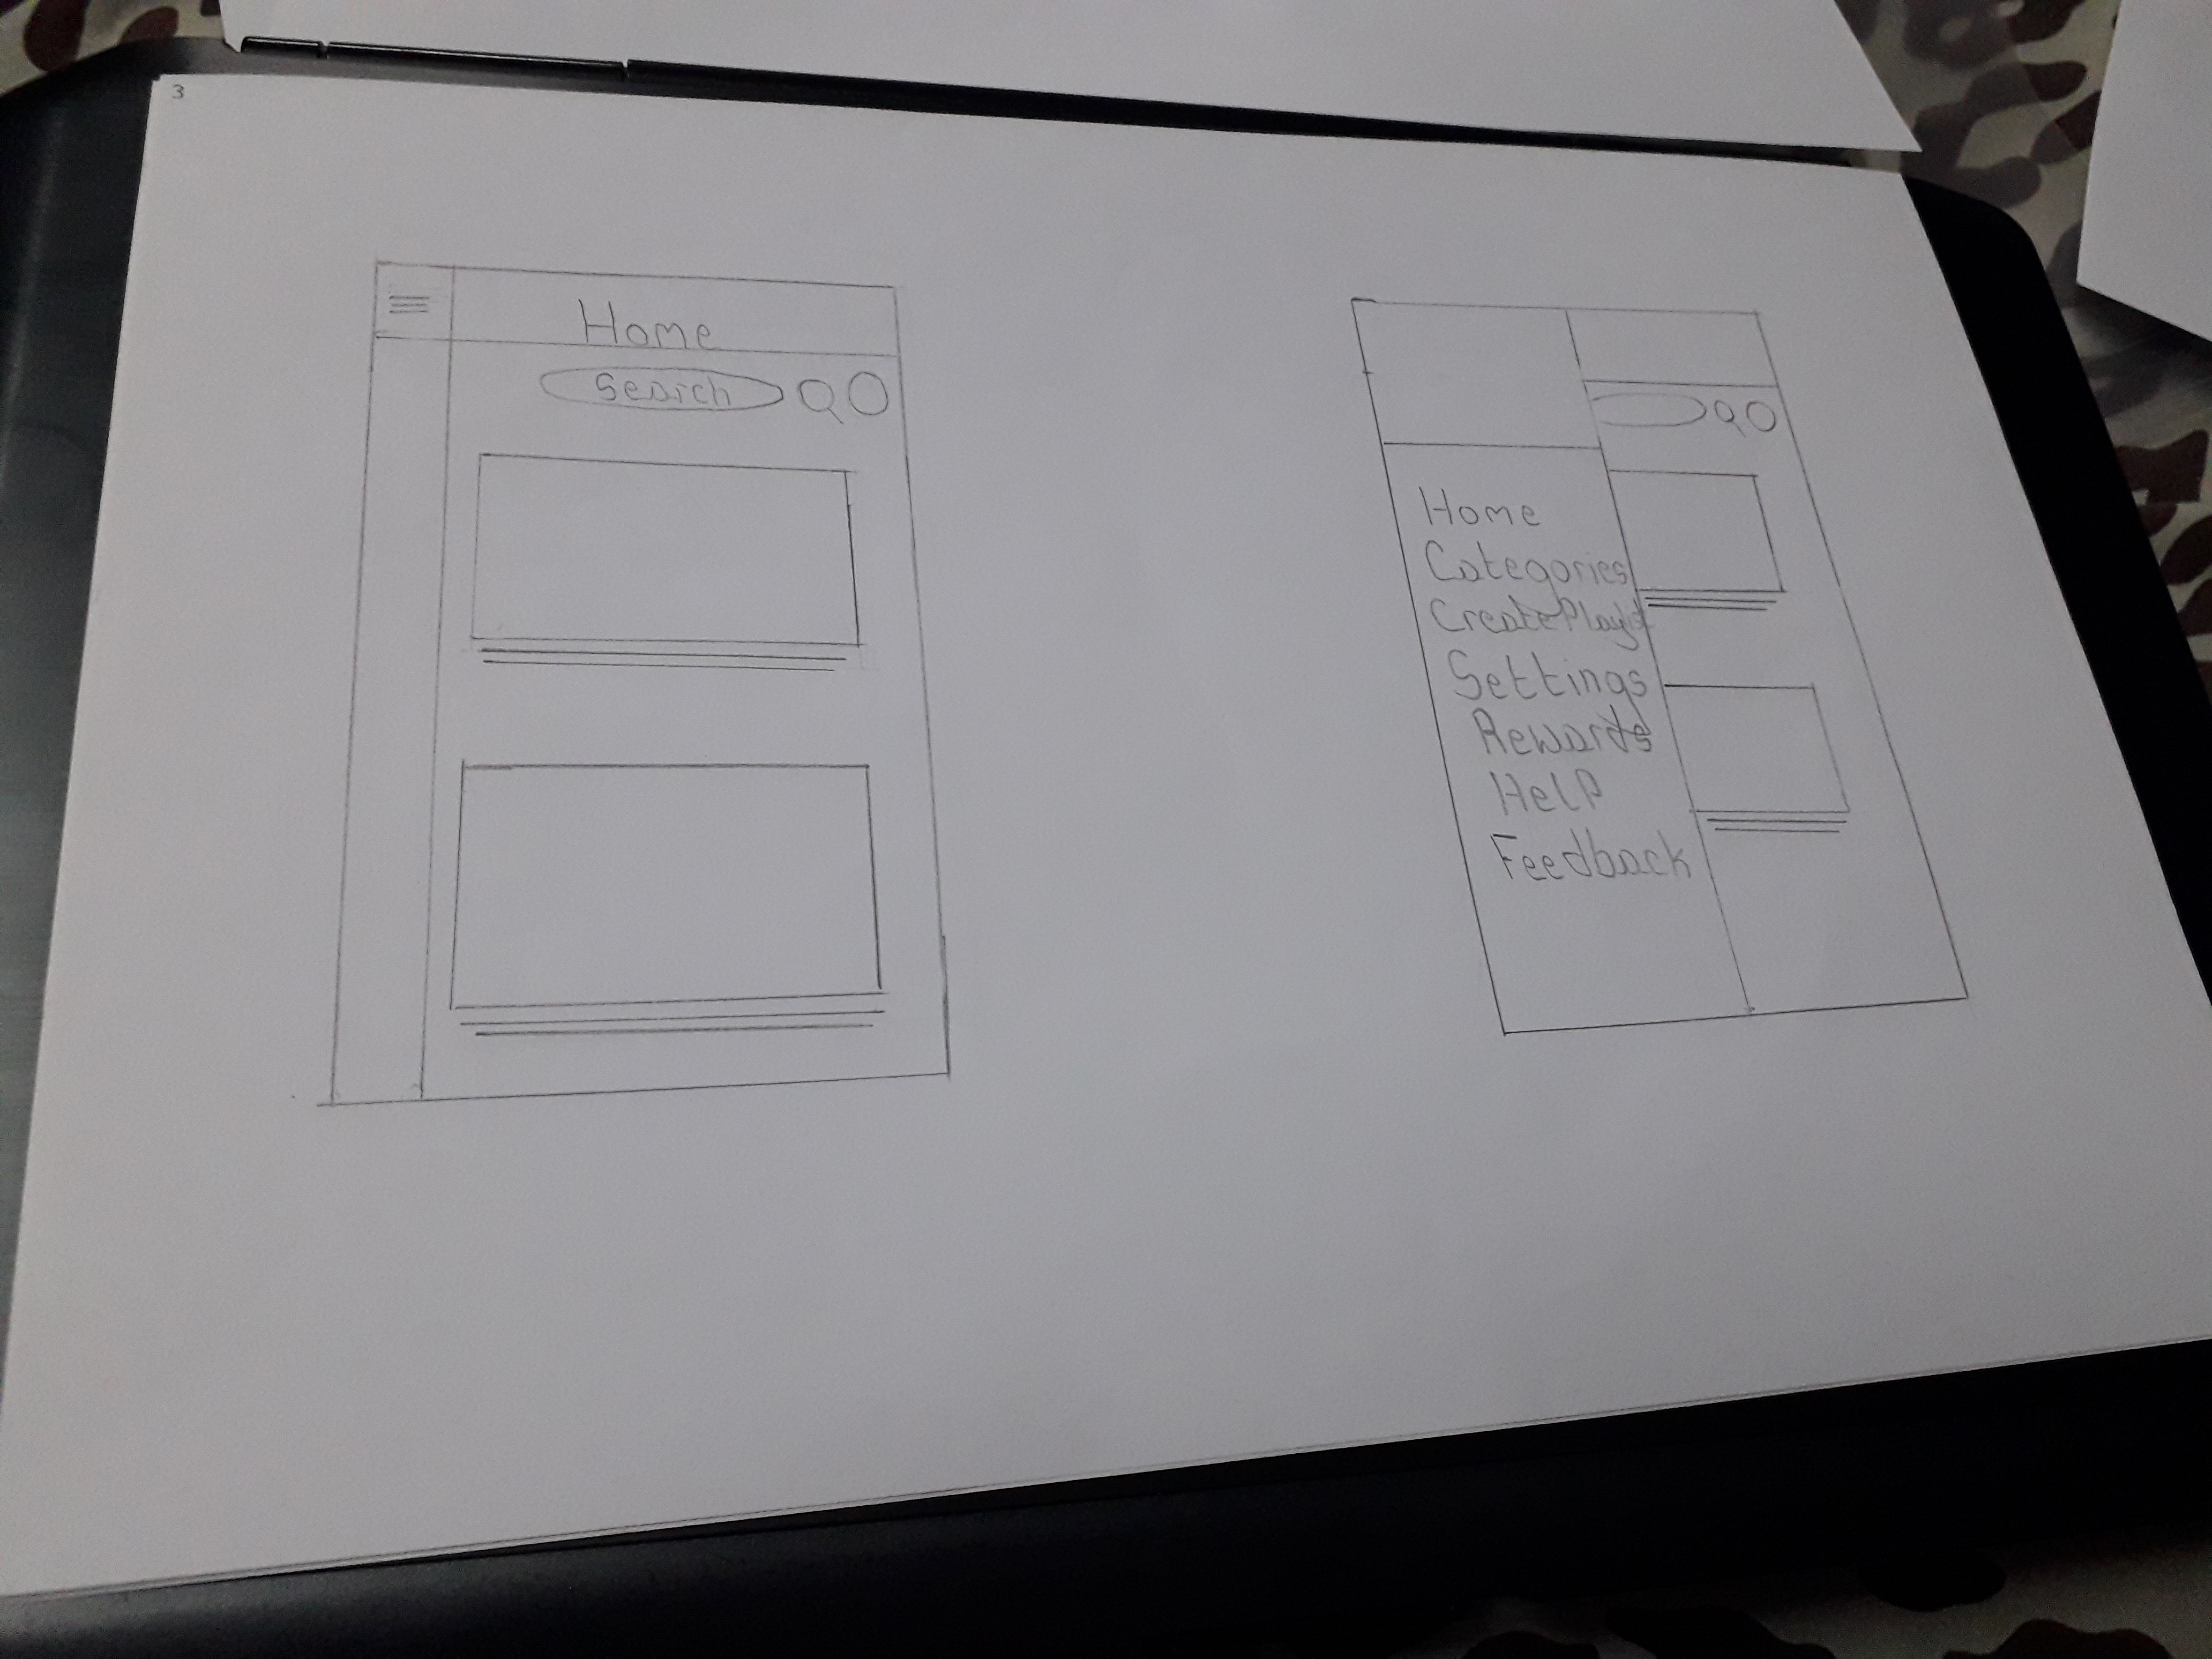 3
Home
Search
Home
Categories
Create Playlist
Settings
Rewards
Help
Feedback